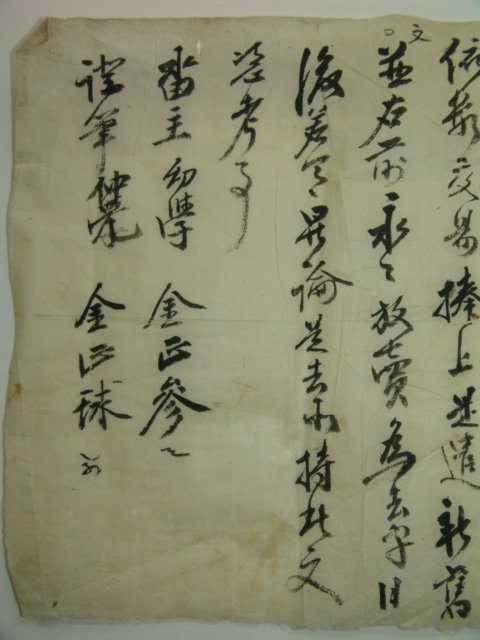 依數交易捧上是遣新舊
文
並右前永〻放賣爲去乎日
後若有是論是去等持此文
憑考事
畓主幼學 金正參
證筆 金正球